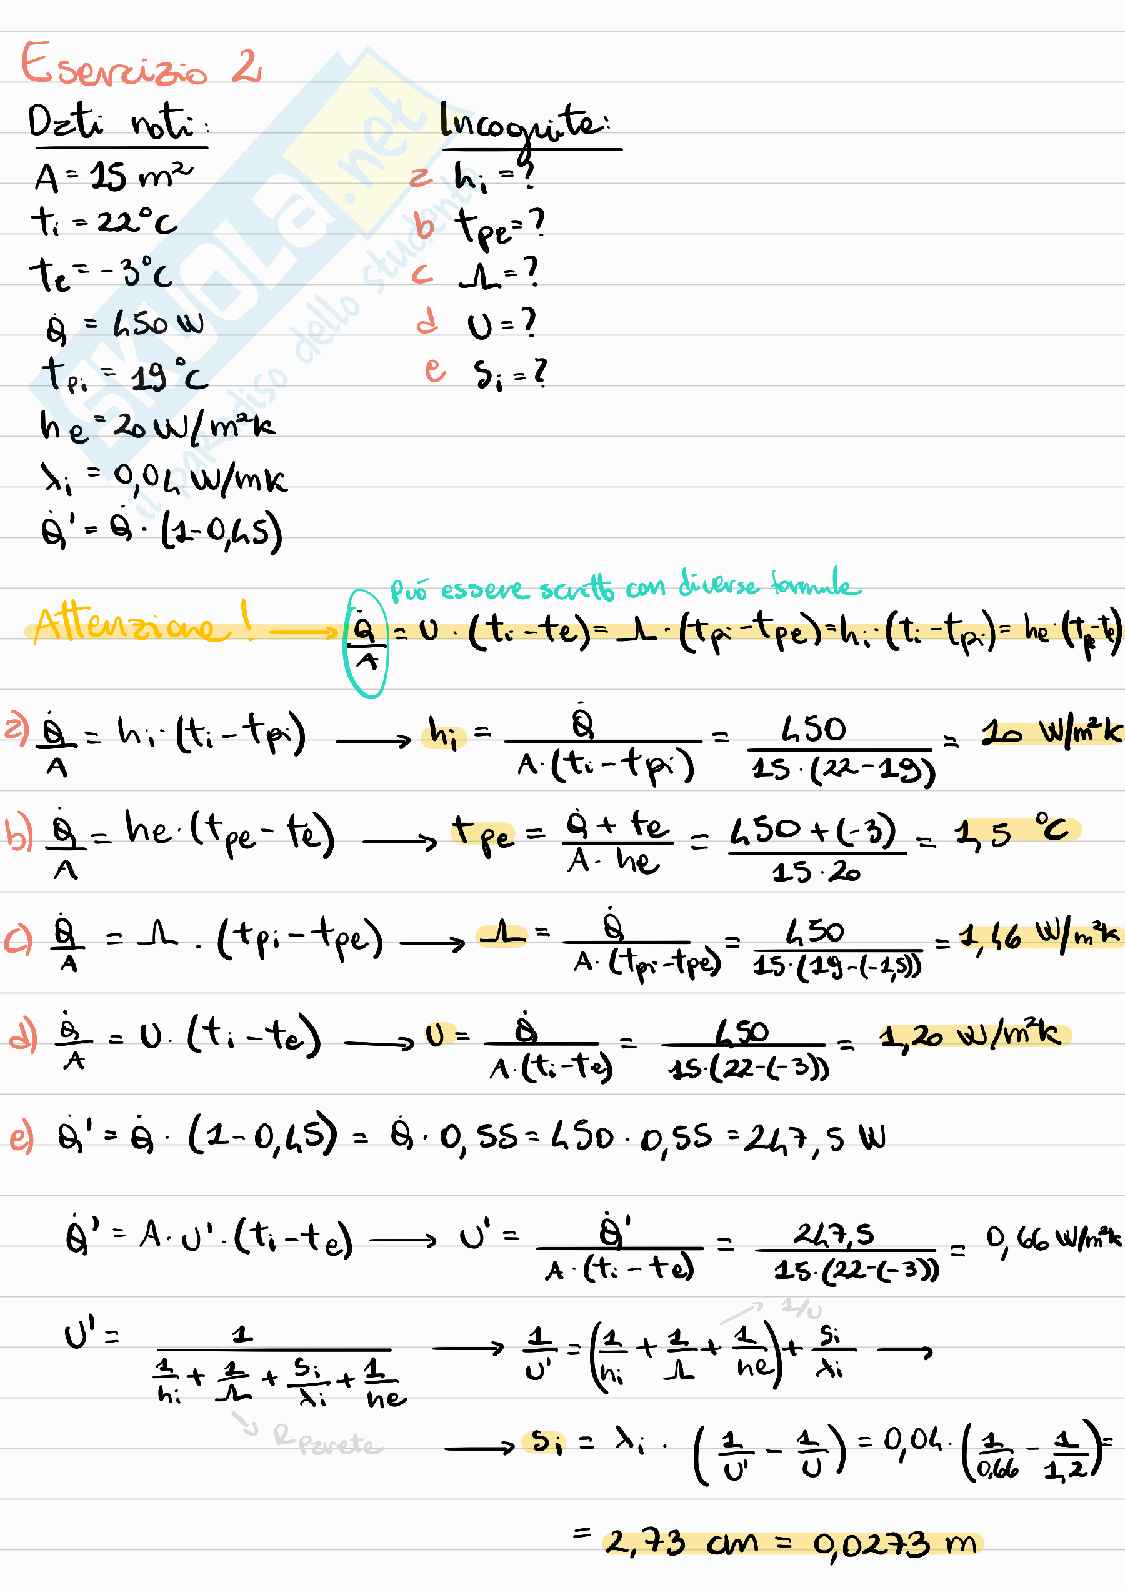 Esercizio 2
Dati noti:
A = 15 m²
ti = 22°C
te = -3°C
Q̇ = 450 W
tpi = 19°C
he = 20 W/m²k
λi = 0,04 W/mk
Q̇' = Q̇ · (1-0,45)
Incognite:
a hi = ?
b tpe = ?
c Λ = ?
d U = ?
e si = ?
SKUOLA.net
il paradiso dello studente
può essere scritto con diverse formule
Attenzione! → Q̇/A = U · (ti - te) = Λ · (tpi - tpe) = hi · (ti - tpi) = he · (tp - te)
a) Q̇/A = hi · (ti - tpi) → hi = Q̇/(A · (ti - tpi)) = 450/(15 · (22 - 19)) = 10 W/m²k
b) Q̇/A = he · (tpe - te) → tpe = (Q̇ + te)/(A · he) = (450 + (-3))/(15 · 20) = 1,5 °C
c) Q̇/A = Λ · (tpi - tpe) → Λ = Q̇/(A · (tpi - tpe)) = 450/(15 · (19 - (-1,5))) = 1,46 W/m²k
d) Q̇/A = U · (ti - te) → U = Q̇/(A · (ti - te)) = 450/(15 · (22 - (-3))) = 1,20 W/m²k
e) Q̇' = Q̇ · (1 - 0,45) = Q̇ · 0,55 = 450 · 0,55 = 247,5 W
Q̇' = A · U' · (ti - te) → U' = Q̇'/(A · (ti - te)) = 247,5/(15 · (22 - (-3))) = 0,66 W/m²k
→ 1/U
U' = 1/(1/hi + 1/Λ + si/λi + 1/he) → 1/U' = (1/hi + 1/Λ + 1/he) + si/λi →
→ R parete
→ si = λi · (1/U' - 1/U) = 0,04 · (1/0,66 - 1/1,2) =
= 2,73 cm = 0,0273 m